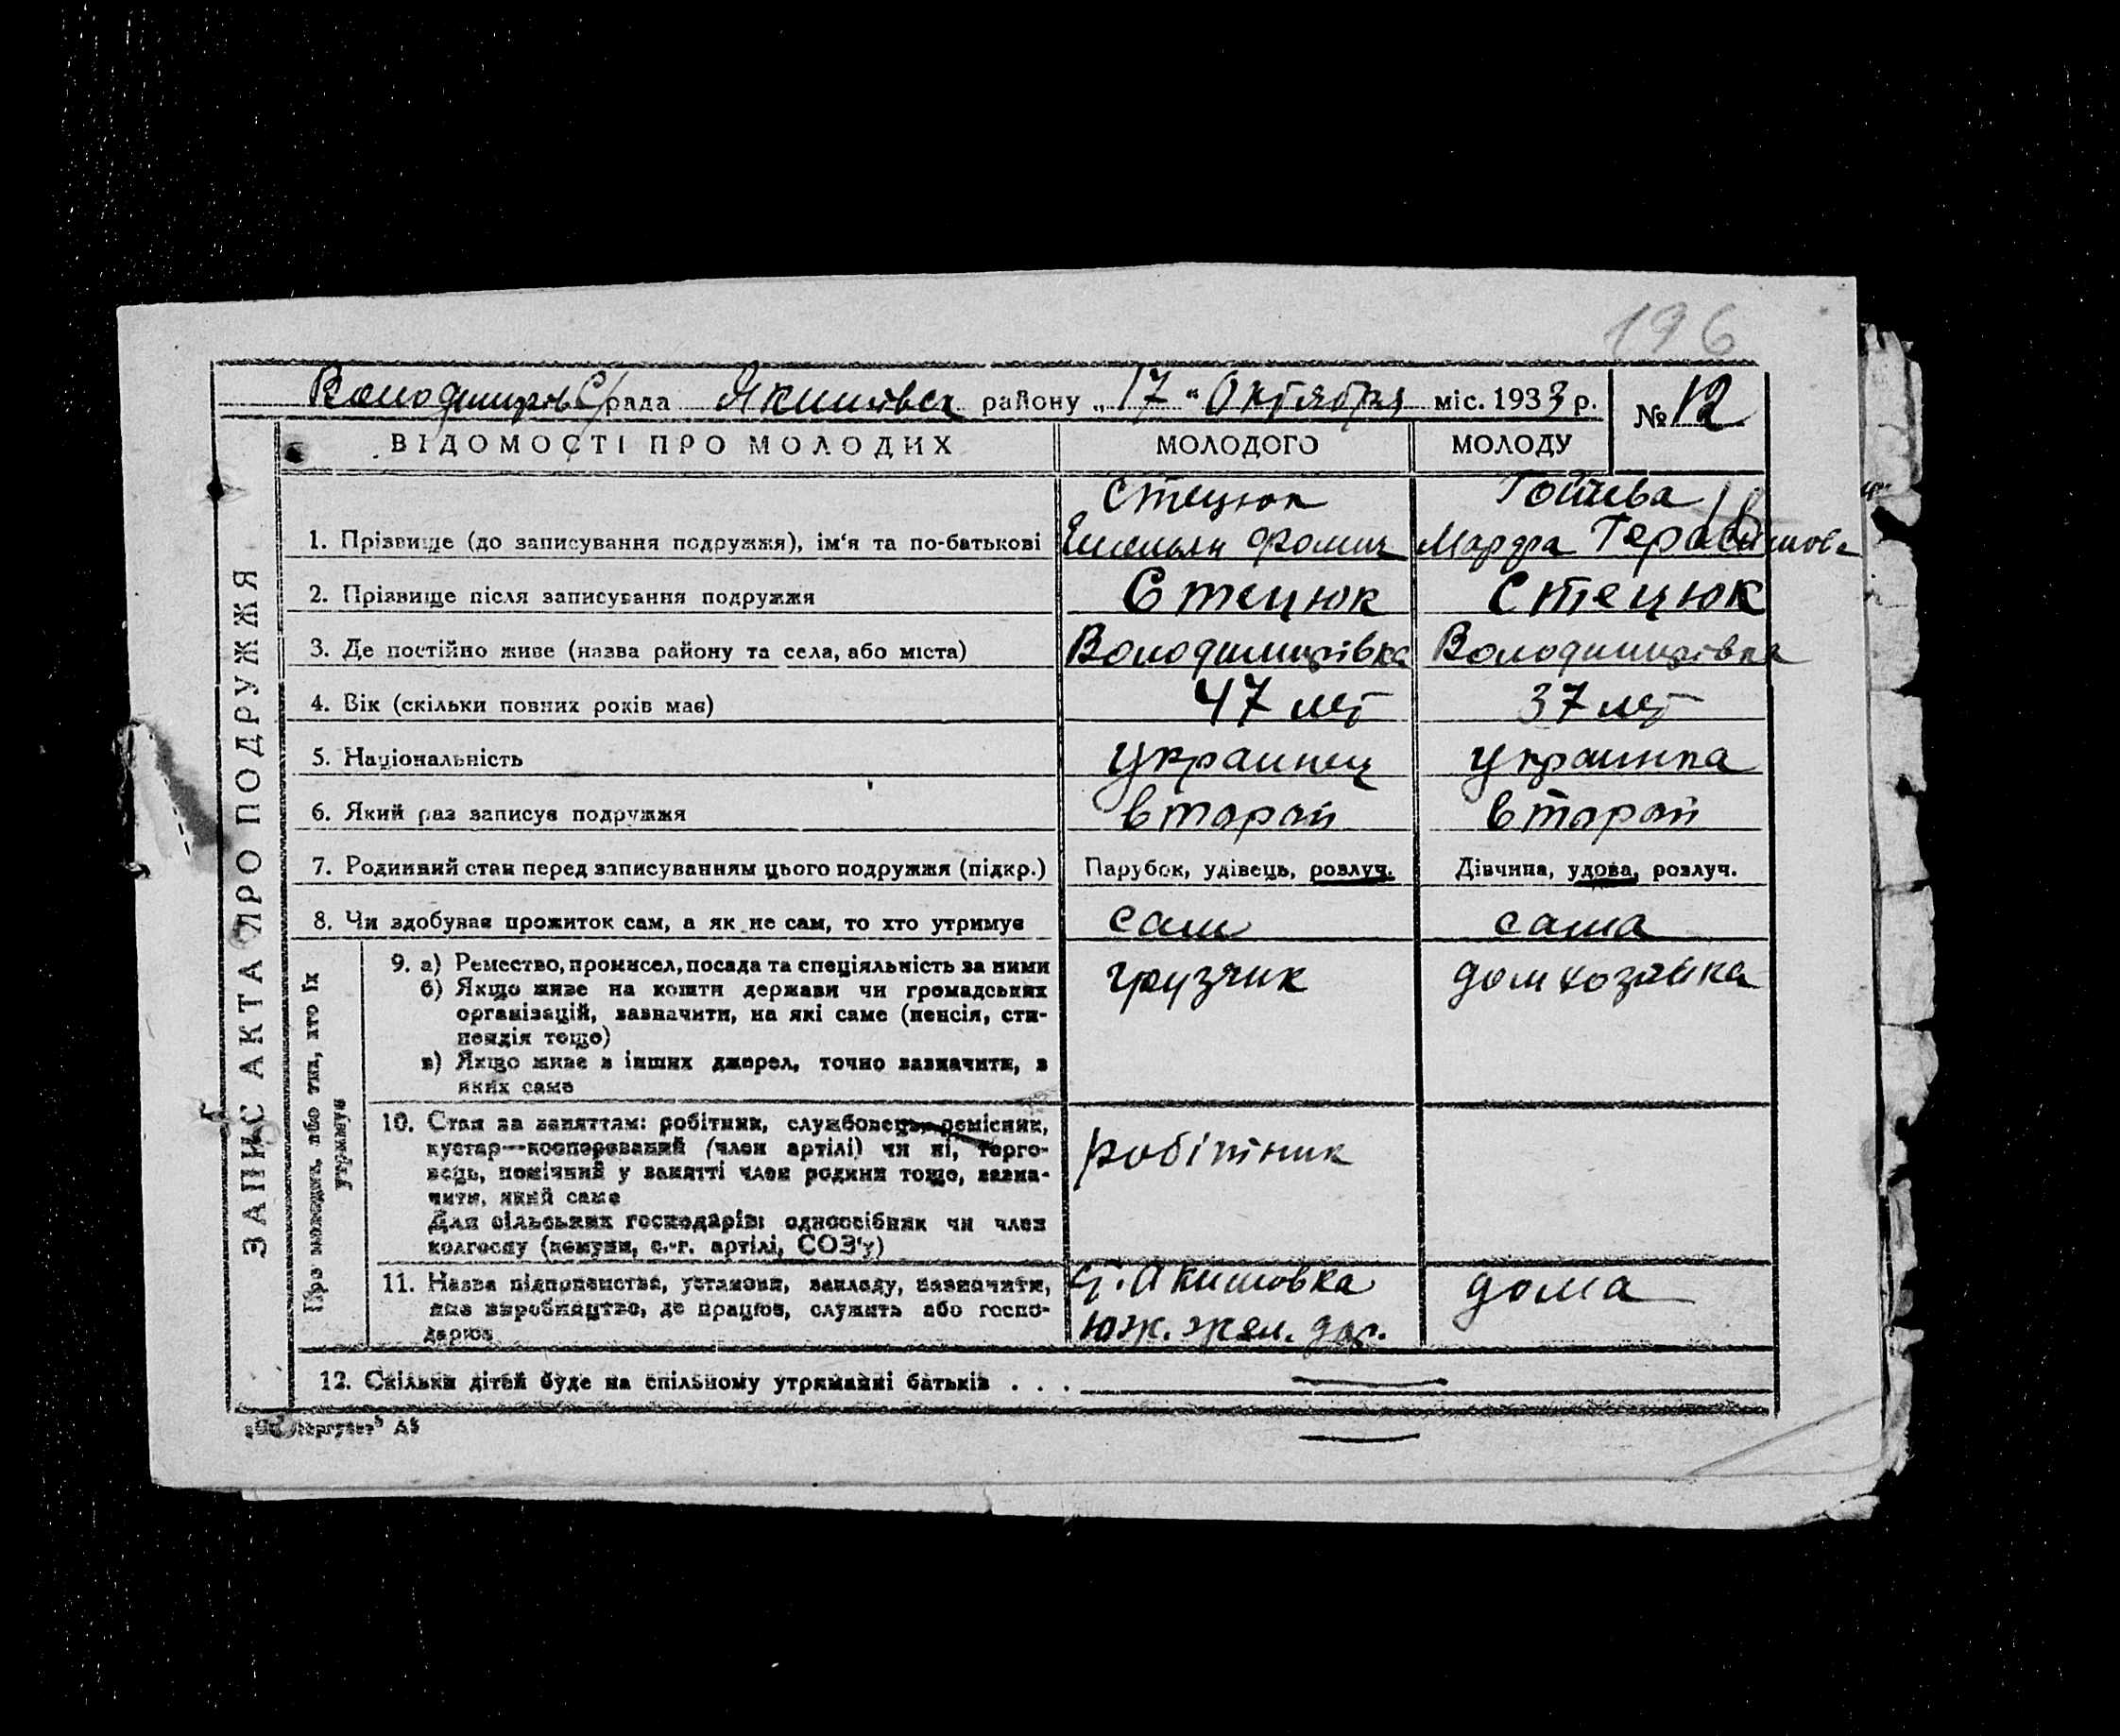 196
Володимирів С/рада Якимівськ району „17" Октября міс. 1933 р. № 12
ВІДОМОСТІ ПРО МОЛОДИХ МОЛОДОГО МОЛОДУ
ЗАПИС АКТА ПРО ПОДРУЖЖЯ
Стецюк
1. Прізвище (до записування подружжя), ім'я та по-батькові Емельян Фомич Марфа Герасимов
2. Прізвище після записування подружжя Стецюк Стецюк
3. Де постійно живе (назва району та села, або міста) Володимирівка Володимирівка
4. Вік (скільки повних років має) 47 лет 37 лет
5. Національність украинец украинка
6. Який раз записує подружжя второй второй
7. Родинний стан перед записуванням цього подружжя (підкр.) Парубок, удівець, розлуч. Дівчина, удова, розлуч.
8. Чи здобував прожиток сам, а як не сам, то хто утримує сам сама
Про молодих, або тих, хто їх утримує
9. а) Ремество, промисел, посада та спеціяльність за ними грузчик дом хозяйка
б) Якщо живе на кошти держави чи громадських
організацій, зазначити, на які саме (пенсія, сти-
пендія тощо)
в) Якщо живе з інших джерел, точно зазначити, з
яких саме
10. Стан за заняттям: робітник, службовець, ремісник,
кустар—кооперований (член артілі) чи ні, торго-
вець, помічний у занятті член родини тощо, зазна- робітник
чити, який саме
Для сільських господарів: одноосібник чи член
колгоспу (комуни, с.-г. артілі, СОЗ'у)
11. Назва підприємства, установи, закладу, зазначити, ст. Акимовка дома
яке виробництво, де працює, служить або госпо-
дарює юж. жел. дор.
12. Скільки дітей буде на спільному утриманні батьків . . .